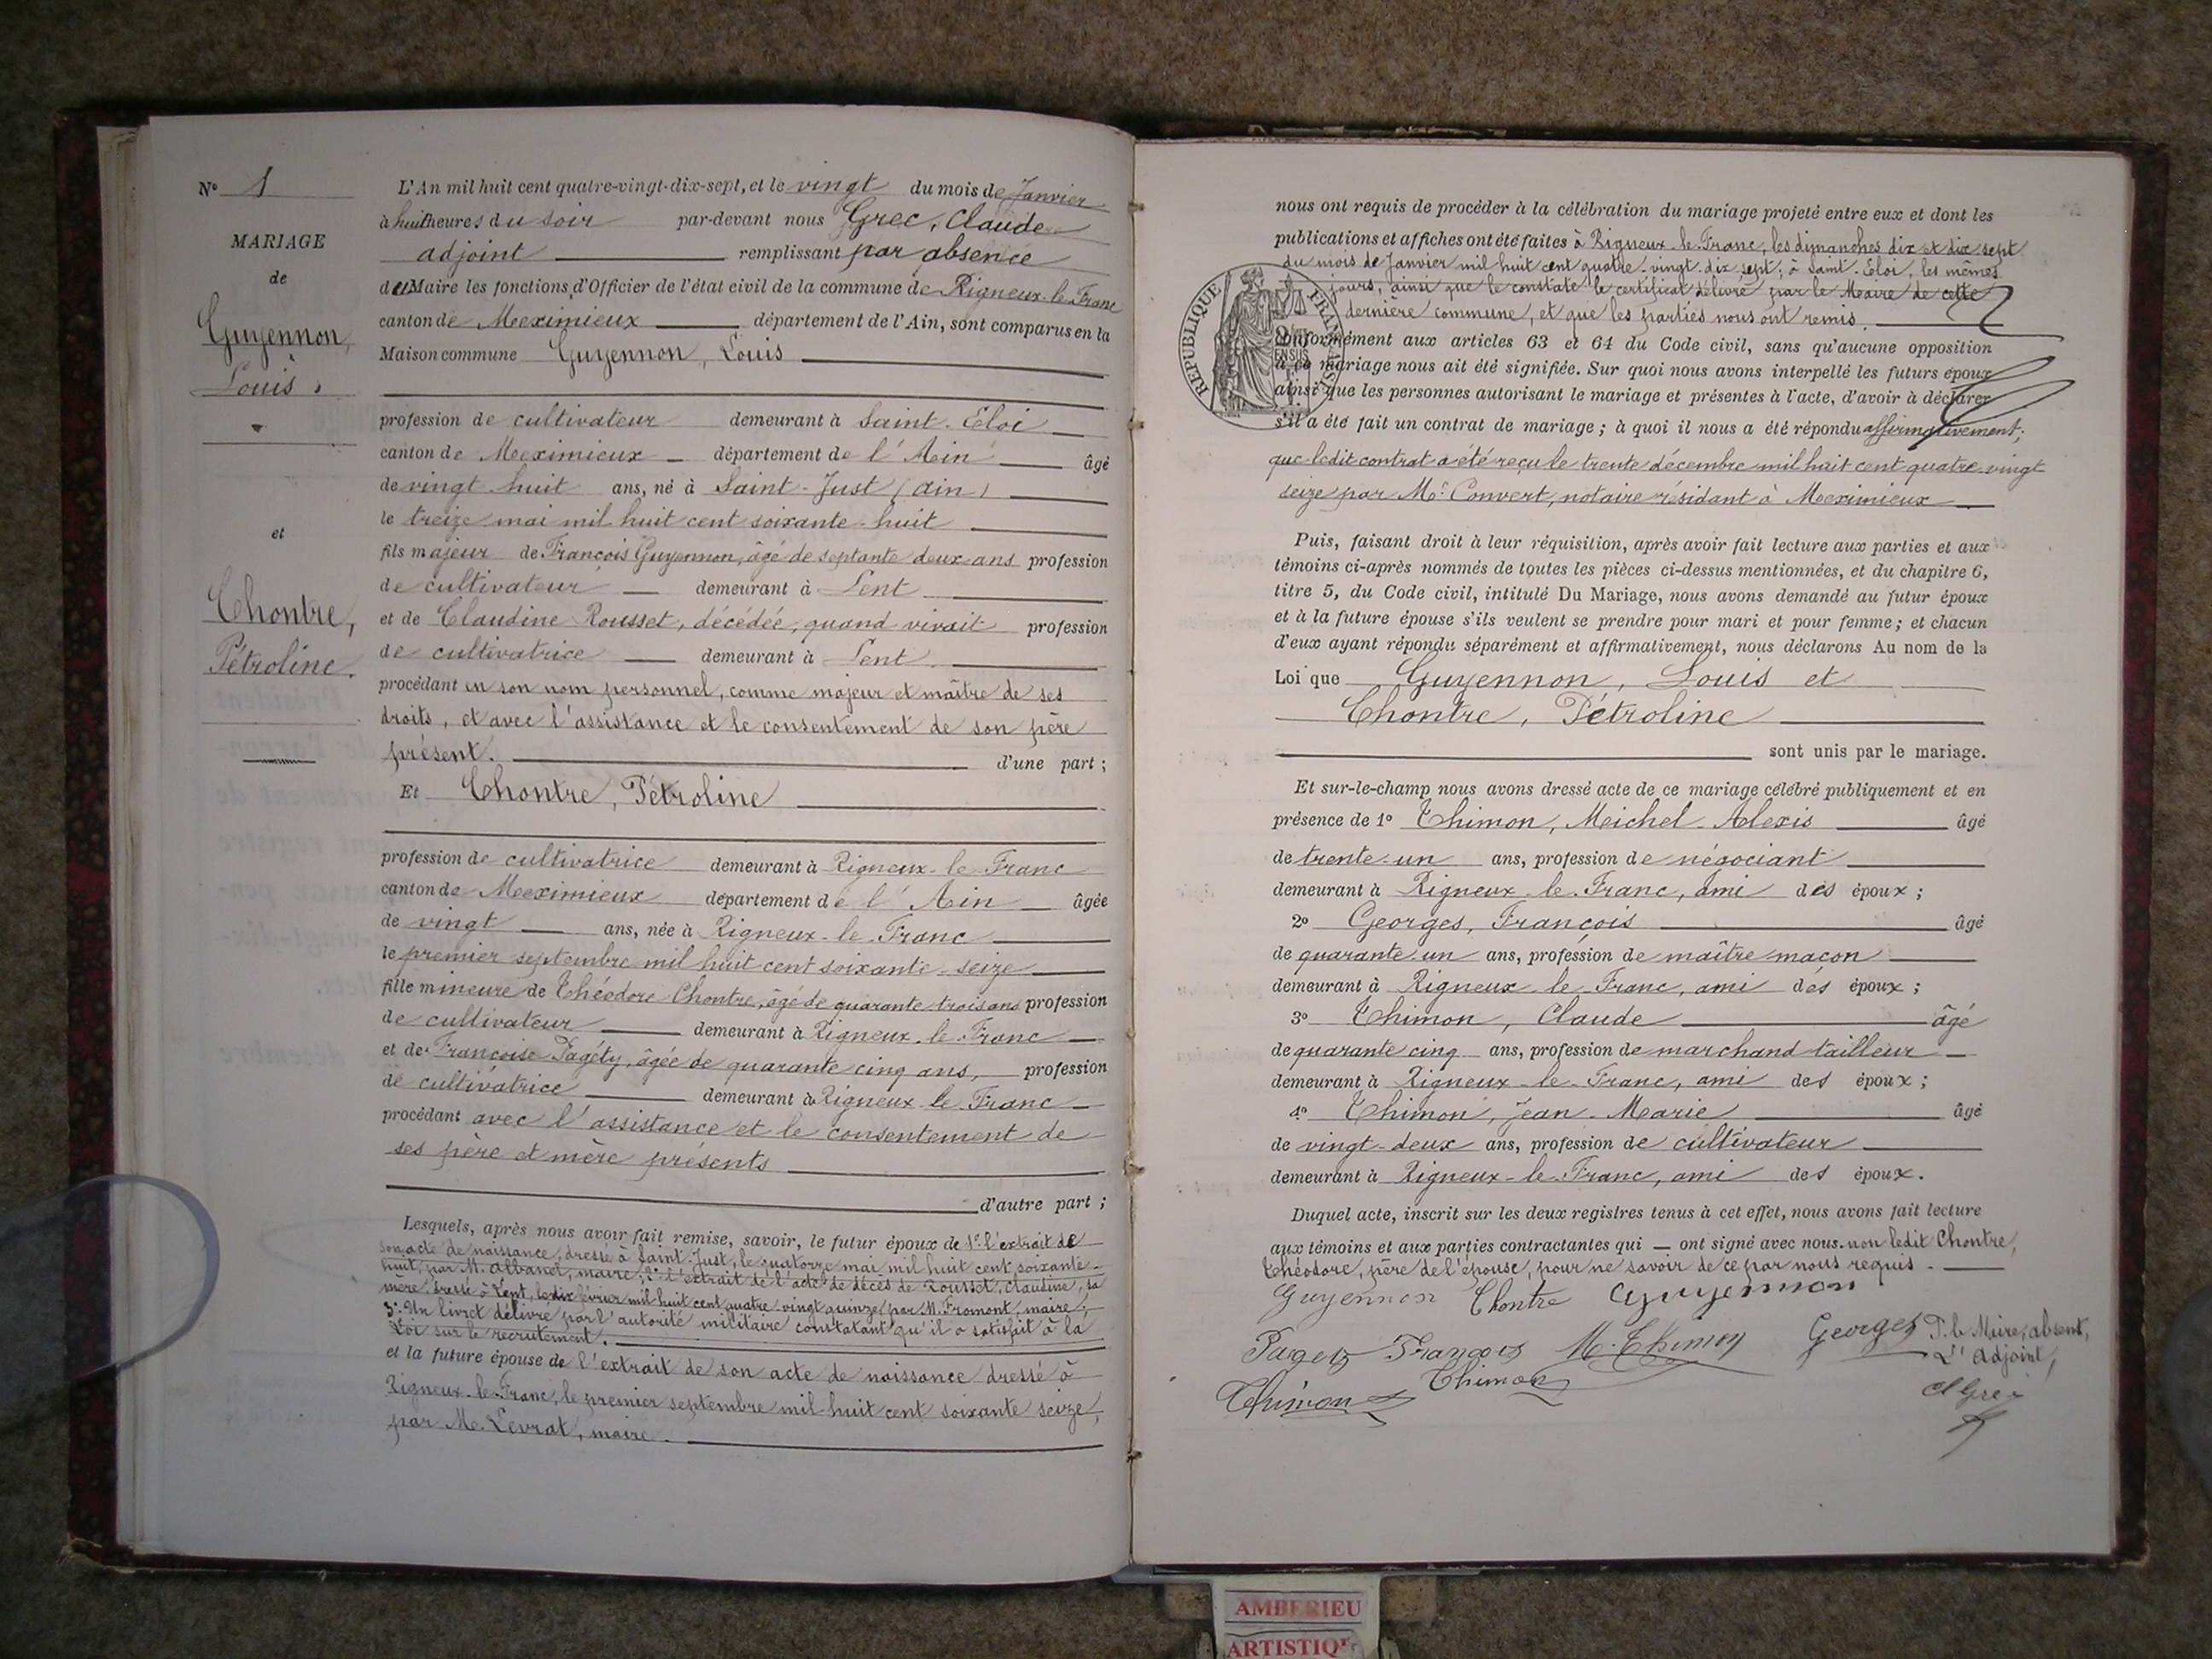 N° 1
MARIAGE
de
Guyennon,
Louis.
et
Chontre,
Pétroline.
L'An mil huit cent quatre-vingt-dix-sept, et le vingt du mois de Janvier
à huit heures du soir par-devant nous Grec, Claude
adjoint remplissant par absence
du Maire les fonctions d'Officier de l'état civil de la commune de Rigneux-le-Franc
canton de Meximieux département de l'Ain, sont comparus en la
Maison commune Guyennon, Louis
profession de cultivateur demeurant à Saint-Eloi
canton de Meximieux département de l'Ain âgé
de vingt-huit ans, né à Saint-Just (Ain)
le treize mai mil huit cent soixante-huit
fils majeur de François Guyennon, âgé de septante deux ans profession
de cultivateur demeurant à Lent
et de Claudine Rousset, décédée, quand vivait profession
de cultivatrice demeurant à Lent
procédant en son nom personnel, comme majeur et maître de ses
droits, et avec l'assistance et le consentement de son père
présent. d'une part ;
Et Chontre, Pétroline
profession de cultivatrice demeurant à Rigneux-le-Franc
canton de Meximieux département de l'Ain âgée
de vingt ans, née à Rigneux-le-Franc
le premier septembre mil huit cent soixante-seize
fille mineure de Théodore Chontre, âgé de quarante trois ans profession
de cultivateur demeurant à Rigneux-le-Franc
et de Françoise Pagéty, âgée de quarante cinq ans, profession
de cultivatrice demeurant à Rigneux-le-Franc
procédant avec l'assistance et le consentement de
ses père et mère présents
d'autre part ;
Lesquels, après nous avoir fait remise, savoir, le futur époux de 1° l'extrait de
son acte de naissance, dressé à Saint-Just, le quatorze mai mil huit cent soixante-
huit, par M. Albanel, maire ; 2° l'extrait de l'acte de décès de Rousset, Claudine, sa
mère, dressé à Lent, le dix février mil huit cent quatre-vingt quinze, par M. Fromont, maire ;
3° Un livret délivré par l'autorité militaire constatant qu'il a satisfait à la
Loi sur le recrutement.
et la future épouse de l'extrait de son acte de naissance dressé à
Rigneux-le-Franc, le premier septembre mil huit cent soixante seize,
par M. Levrat, maire.
nous ont requis de procéder à la célébration du mariage projeté entre eux et dont les
publications et affiches ont été faites à Rigneux-le-Franc, les dimanches dix et dix sept
du mois de Janvier mil huit cent quatre-vingt-dix sept ; à Saint-Eloi, les mêmes
jours, ainsi que le constate le certificat délivré par le Maire de cette
dernière commune, et que les parties nous ont remis.
RÉPUBLIQUE FRANÇAISE
Conformément aux articles 63 et 64 du Code civil, sans qu'aucune opposition
à ce mariage nous ait été signifiée. Sur quoi nous avons interpellé les futurs époux
ainsi que les personnes autorisant le mariage et présentes à l'acte, d'avoir à déclarer
s'il a été fait un contrat de mariage ; à quoi il nous a été répondu affirmativement ;
que ledit contrat a été reçu le trente décembre mil huit cent quatre-vingt
seize par Me Convert, notaire résidant à Meximieux
Puis, faisant droit à leur réquisition, après avoir fait lecture aux parties et aux
témoins ci-après nommés de toutes les pièces ci-dessus mentionnées, et du chapitre 6,
titre 5, du Code civil, intitulé Du Mariage, nous avons demandé au futur époux
et à la future épouse s'ils veulent se prendre pour mari et pour femme ; et chacun
d'eux ayant répondu séparément et affirmativement, nous déclarons Au nom de la
Loi que Guyennon, Louis et
Chontre, Pétroline
sont unis par le mariage.
Et sur-le-champ nous avons dressé acte de ce mariage célébré publiquement et en
présence de 1° Thimon, Michel-Alexis âgé
de trente-un ans, profession de négociant
demeurant à Rigneux-le-Franc, ami des époux ;
2° Georges, François âgé
de quarante-un ans, profession de maître maçon
demeurant à Rigneux-le-Franc, ami des époux ;
3° Thimon, Claude âgé
de quarante cinq ans, profession de marchand tailleur
demeurant à Rigneux-le-Franc, ami des époux ;
4° Thimon, Jean-Marie âgé
de vingt-deux ans, profession de cultivateur
demeurant à Rigneux-le-Franc, ami des époux.
Duquel acte, inscrit sur les deux registres tenus à cet effet, nous avons fait lecture
aux témoins et aux parties contractantes qui ont signé avec nous. non ledit Chontre,
Théodore, père de l'épouse, pour ne savoir de ce par nous requis.
Guyennon Chontre Guyennon
Pagety Françoise M. Thimon Georges P. le Maire, absent,
L'Adjoint,
Thimon Thimon
Cl Grec
AMBERIEU
ARTISTIQUE